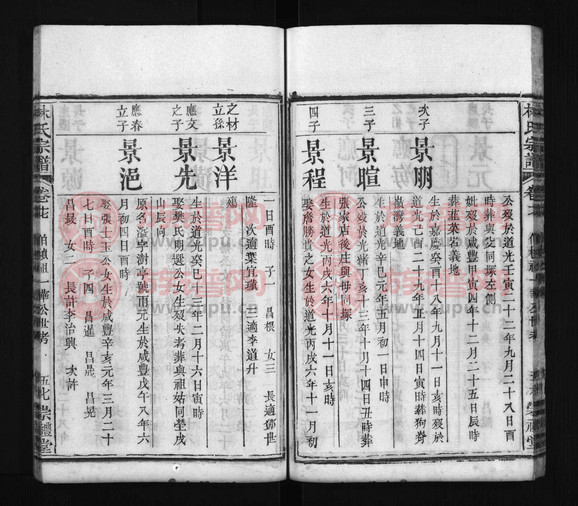 公歿於道光壬寅二十二年九月二十八日酉
時葬與父同塚左側
妣歿於咸豐甲寅四年十二月二十五日辰時
葬菜若義地
次子
景明
生於嘉慶癸酉十八年十二月十一日亥時歿於
光緒己二十九年五月十四日寅時葬狗
灣義地
三子
景暄
生於道光辛巳元年五月初一日申時
公歿於光緒丁亥十三年十月十四日丑時葬
張家店後莊與母同塚
四子
景程
生於道光丙戌六年十月十一日亥時
娶詹勝道之女生於道光丙戌六年十一月初
一日酉時 子一 昌根 女三 長適鄧世
隆 次適葉宜璸 三適李道升
之材立孫
景洋
應文之子
景先
生於道光癸巳十三年二月十六日寅時
娶樊氏明選公女生歿失考葬與祖姑同塋戌
山辰向
應春立子
景浥
原名溢字澍亭號頂元生於咸豐戊午八年六
月初四日酉時
娶張士玉公女生於咸豐辛亥元年三月二十
七日酉時 子四 昌暹 昌晟 昌晃
昌 女二 長許李治興 次許
林氏宗譜
卷廿
崇禮堂